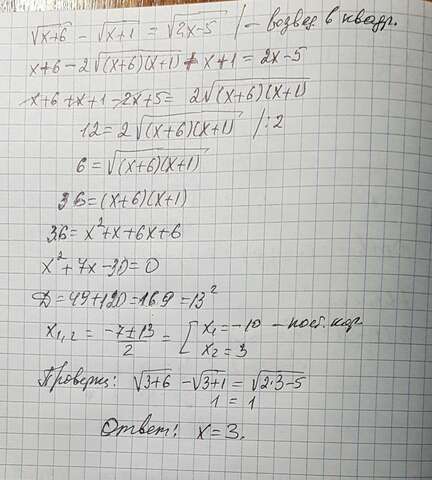 √(x+6) - √(x+1) = √(2x-5) /- возвед. в квадр.
x+6-2√((x+6)(x+1)) + x+1 = 2x-5
x+6+x+1-2x+5 = 2√((x+6)(x+1))
12 = 2√((x+6)(x+1)) /:2
6 = √((x+6)(x+1))
36 = (x+6)(x+1)
36 = x²+x+6x+6
x²+7x-30=0
D=49+120=169=13²
x₁,₂ = (-7±13)/2 = [ x₁=-10 - пост. кор.
x₂=3
Проверка: √(3+6) - √(3+1) = √(2·3-5)
1 = 1
Ответ: x=3.